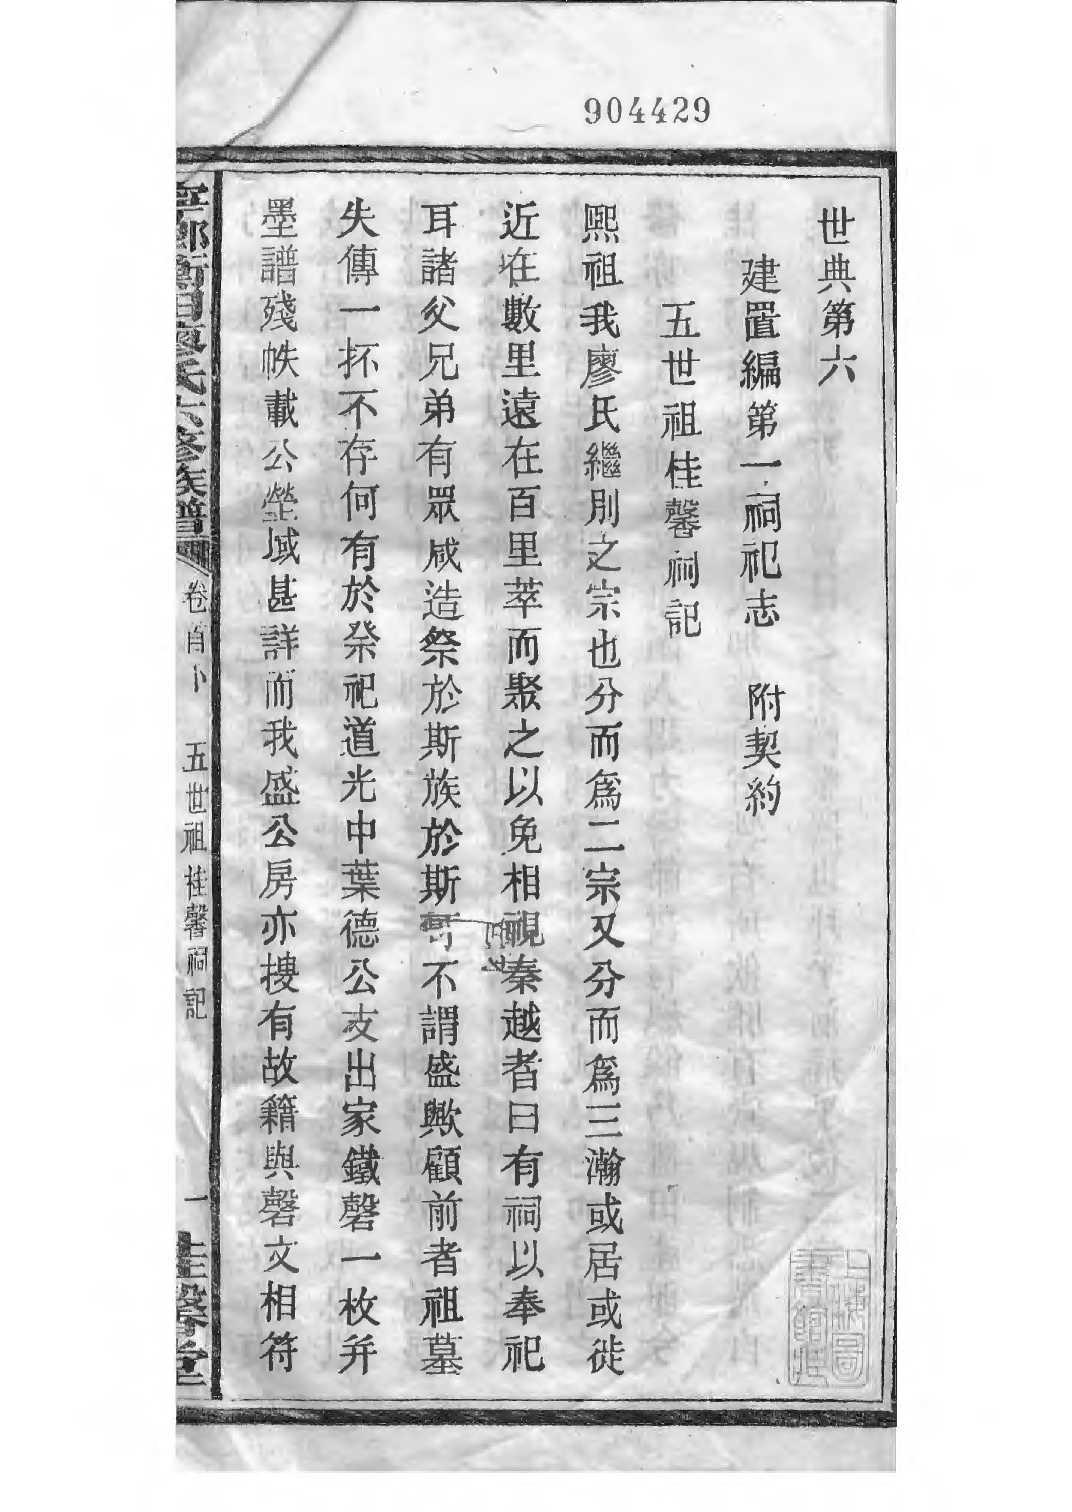 904429
世典第六
建置編第一祠祀志 附契約
五世祖桂馨祠記
熙祖我廖氏繼別之宗也分而爲二宗又分而爲三瀚或居或徙
近在數里遠在百里萃而聚之以免相視秦越者曰有祠以奉祀
耳諸父兄弟有眾咸造祭於斯族於斯可不謂盛歟顧前者祖墓
失傳一抔不存何有於祭祀道光中葉德公支出家鐵磬一枚并
墨譜殘帙載公塋域甚詳而我盛公房亦摟有故籍與磬文相符
寧鄉衡田廖氏六修族譜
卷首卜 五世祖桂馨祠記
一
桂馨堂
上海圖書館藏